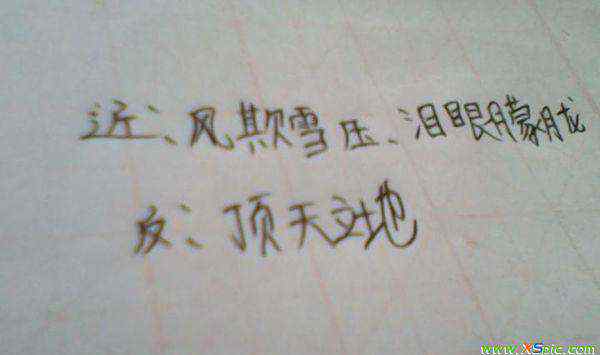 近:、风欺雪压、泪眼朦胧
反:、顶天立地
www.XSpic.com